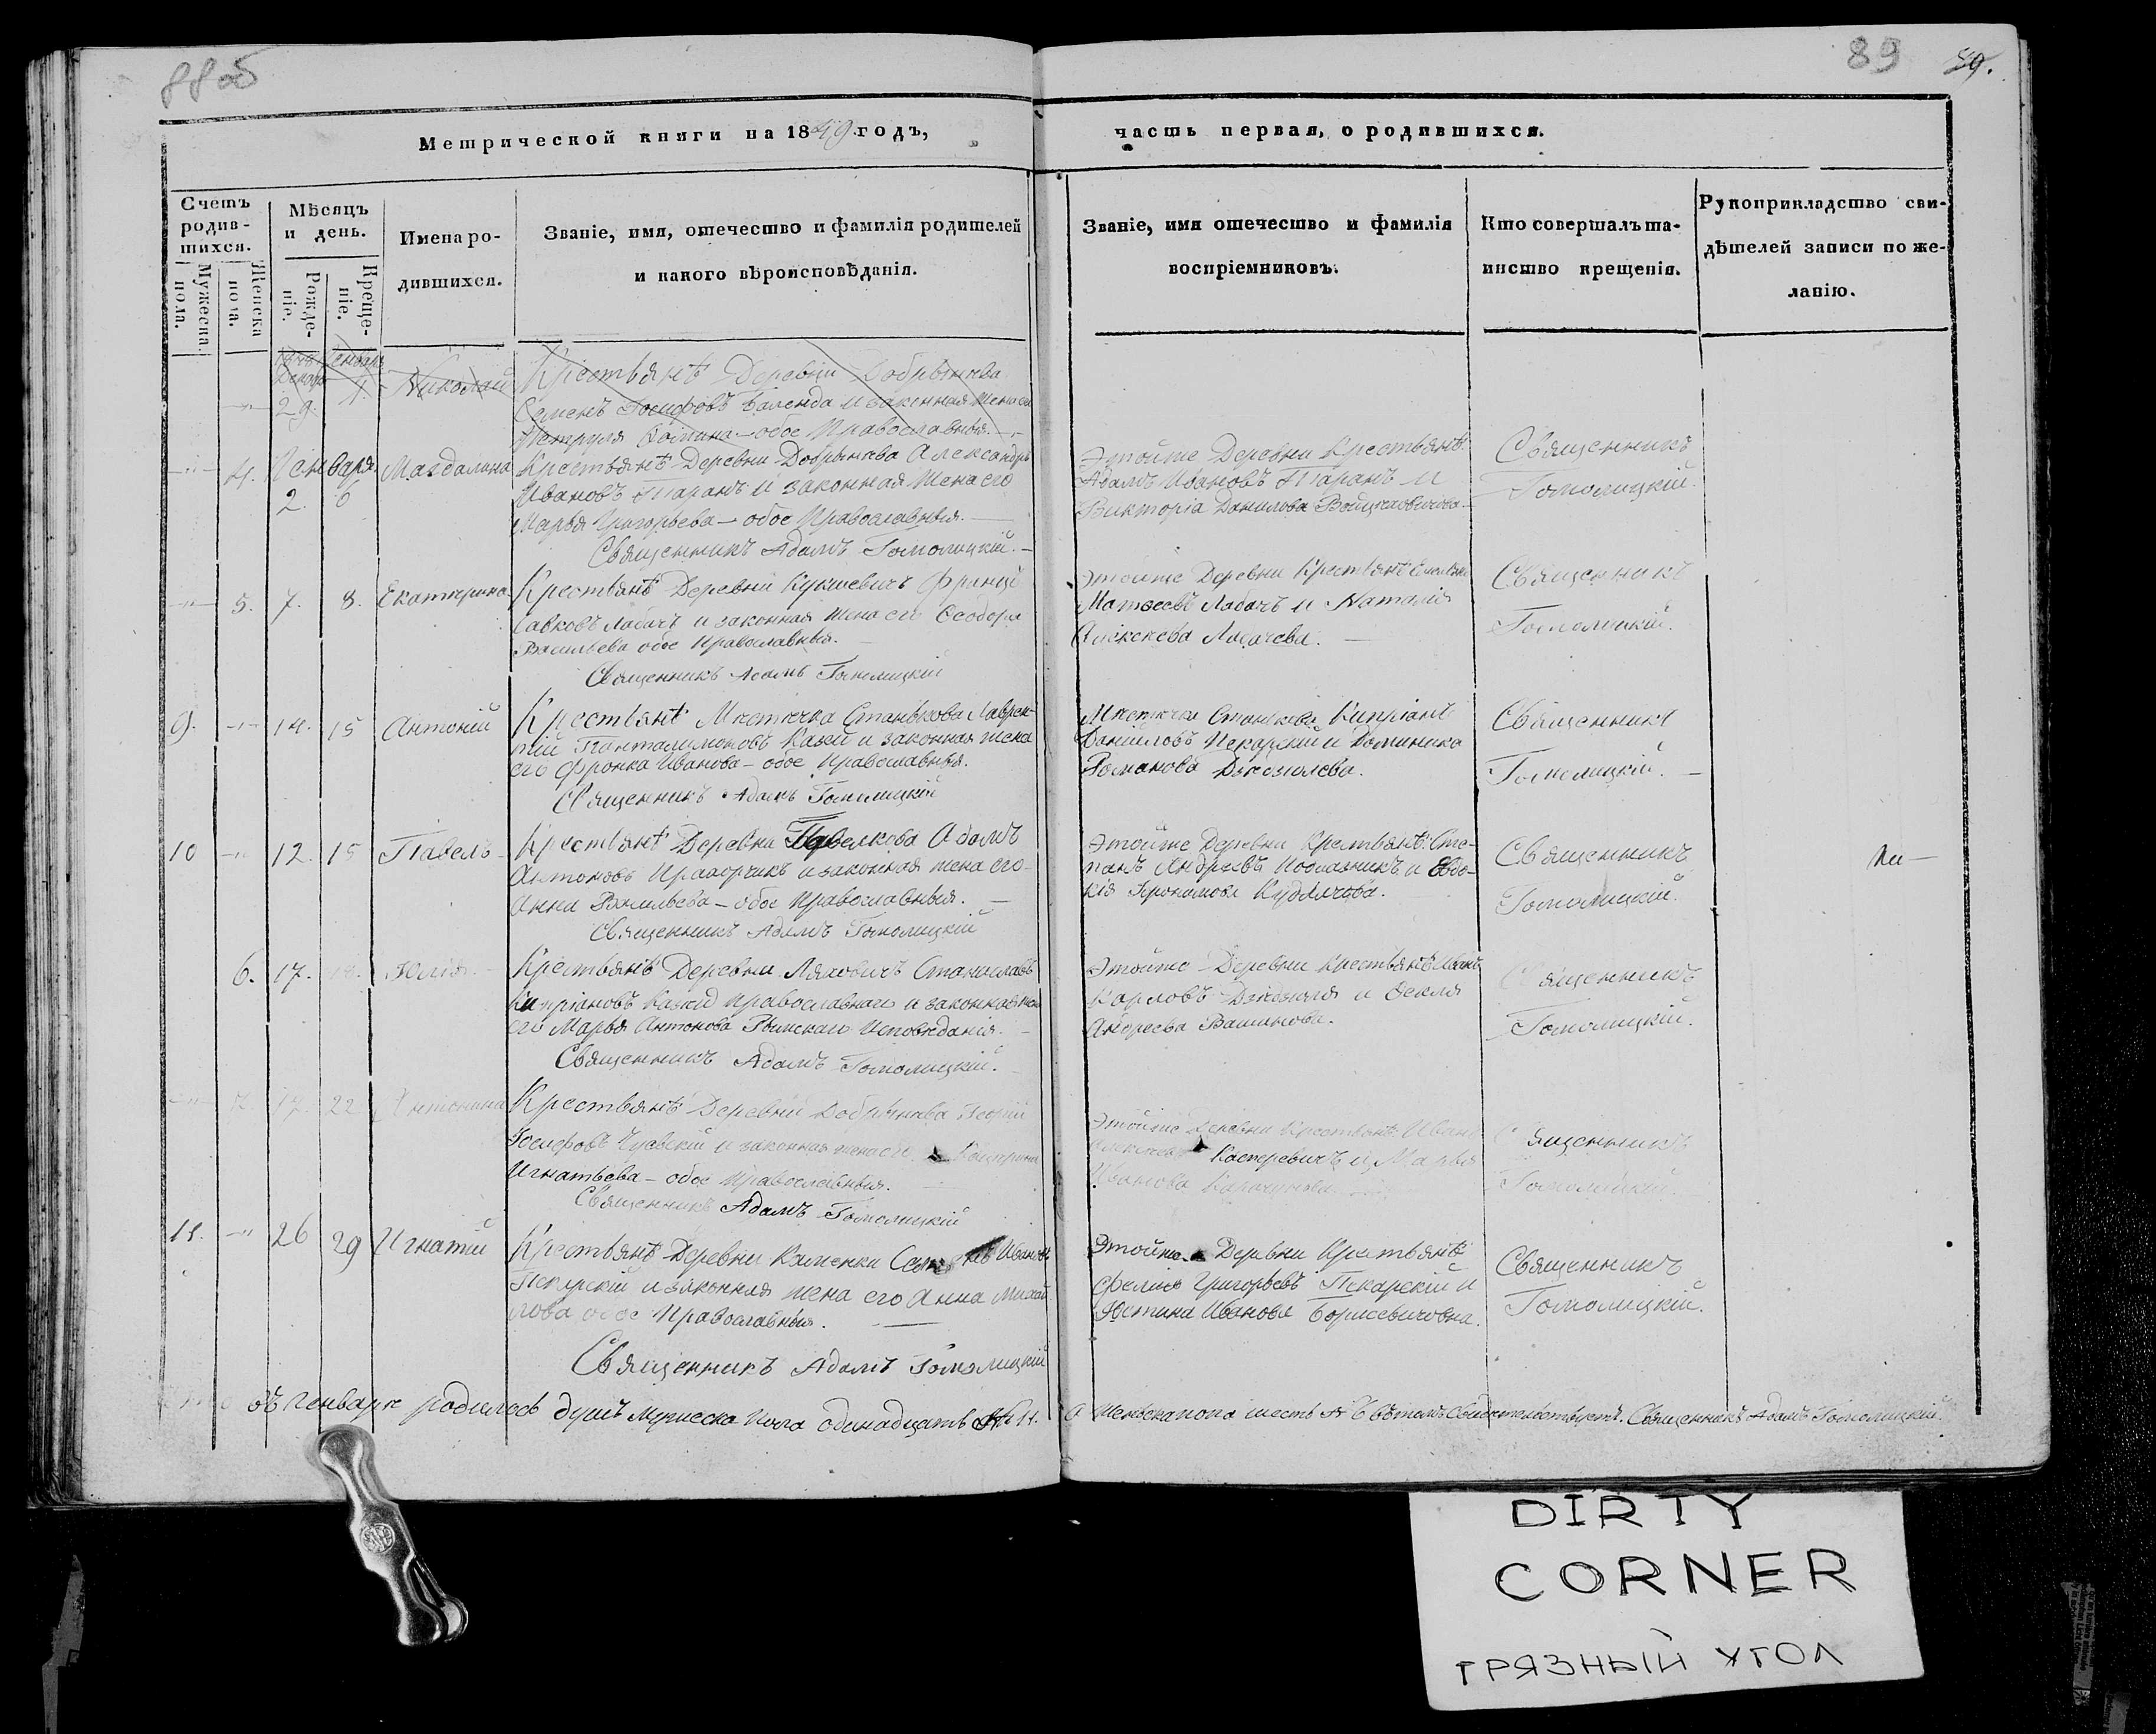 88об
89
89.
Метрической книги на 1849 годъ,
часть первая, о родившихся.
Счетъ
родив-
шихся.
Мужеска
пола.
Женска
пола.
Мѣсяцъ
и день.
Рожде-
ніе.
Креще-
ніе.
Имена ро-
дившихся.
Званіе, имя, отечество и фамилія родителей
и какого вѣроисповѣданія.
Званіе, имя отечество и фамилія
воспріемниковъ.
Кто совершалъ та-
инство крещенія.
Рукоприкладство сви-
дѣтелей записи по же-
ланію.
29. 1. Николай Крестьянъ Деревни Добрынева
Семенъ Іосифовъ Баленда и законная жена его
обое Православныя.
4. Генваря Магдалина Крестьянъ Деревни Добрынева Александръ
2. 6 Ивановъ Таранъ и законная жена его
Марья Григорьева – обое Православныя.
Священникъ Адамъ Гомолицкій.
Этойже Деревни Крестьянъ
Адамъ Ивановъ Таранъ и
Викторія Данилова
Священникъ
Гомолицкій.
5. 7. 8. Екатерина Крестьянъ Деревни Кукшевичъ
Савковъ Лабачъ и законная жена его Ѳеодора
Васильева обое Православныя.
Священникъ Адамъ Гомолицкій
Этойже Деревни Крестьянъ
Матвеевъ Лабачъ и Наталія
Алексеева Лабачева.
Священникъ
Гомолицкій.
9. 14. 15 Антоній Крестьянъ Мѣстечка Станькова Лаврен-
тій Панталимоновъ Казей и законная жена
его Фронка Иванова – обое Православныя.
Священникъ Адамъ Гомолицкій
Мѣстечка Станькова Кипріанъ
Даніиловъ Пекарскій и Доминика
Романова
Священникъ
Гомолицкій.
10 12. 15 Павелъ Крестьянъ Деревни Павелкова Адамъ
Антоновъ и законная жена его
Анна Васильева – обое Православныя.
Священникъ Адамъ Гомолицкій
Этойже Деревни Крестьянъ Сте-
панъ Андреевъ и Евдо-
кія
Священникъ
Гомолицкій.
6. 17. 18. Юлія Крестьянъ Деревни Ляховичъ Станиславъ
Кипріановъ православнаго и законная жена
его Марья Антонова Римскаго Исповѣданія.
Священникъ Адамъ Гомолицкій.
Этойже Деревни Крестьянъ Иванъ
Карловъ и Ѳекля
Андреева
Священникъ
Гомолицкій.
22 Антонина Крестьянъ Деревни Добрынева
Іосифовъ и законная жена его
Игнатьева – обое Православныя.
Священникъ Адамъ Гомолицкій
Этойже Деревни Крестьянъ Иванъ
Касперевичъ и Марья
Иванова
Священникъ
Гомолицкій.
11. 26 29 Игнатій Крестьянъ Деревни Каменки Ивановъ
Пекарскій и законная жена его Анна Михай-
лова обое Православныя.
Священникъ Адамъ Гомолицкій
Этойже Деревни Крестьянъ
Григорьевъ Пекарскій и
Юстина Иванова Борисевичовна.
Священникъ
Гомолицкій.
въ Генварѣ родилось душъ Мужеска Пола одинадцать № 11. а Женска пола шесть № 6 въ томъ свидетельствуетъ. Священникъ Адамъ Гомолицкій.
DIRTY
CORNER
ГРЯЗНЫЙ УГОЛ